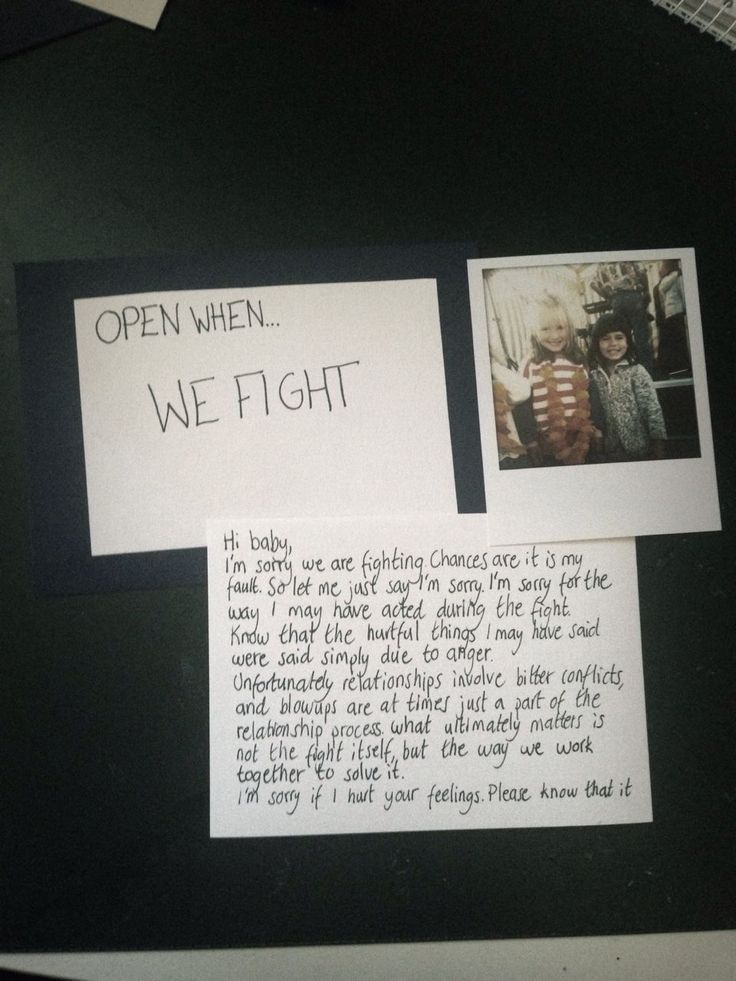 OPEN WHEN...
WE FIGHT
Hi baby,
I'm sorry we are fighting. Chances are it is my
fault. So let me just say I'm sorry. I'm sorry for the
way I may have acted during the fight.
Know that the hurtful things I may have said
were said simply due to anger.
Unfortunately relationships involve bitter conflicts,
and blowups are at times just a part of the
relationship process. What ultimately matters is
not the fight itself, but the way we work
together to solve it.
I'm sorry if I hurt your feelings. Please know that it